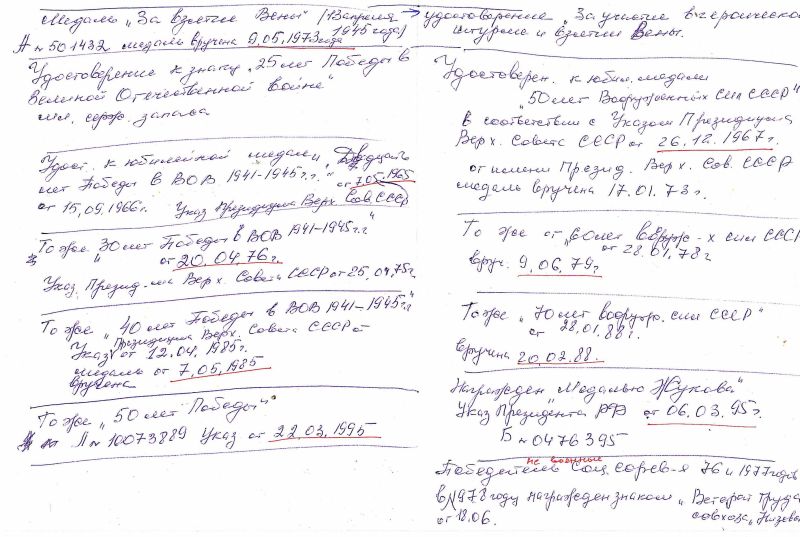 Медаль „За взятие Вены" (13 апреля 1945 года) → удостоверение „За участие в героическом штурме и взятии Вены.
А № 501432 медаль вручена 9.05.1973 года
Удостоверение к знаку „25 лет Победы в
Великой Отечественной войне"
мл. серж. запаса
Удост. к юбилейной медали „Двадцать
лет Победы в ВОВ 1941-1945г.г." от 7.05.1965
от 15.09.1966г. Указ Президиума Верх. Сов. СССР
То же „30 лет Победы в ВОВ 1941-1945г.г"
от 20.04.76г.
Указ. Презид-ма Верх. Совета СССР от 25.04.75г.
То же „40 лет Победы в ВОВ 1941-1945г.г"
Указ Президиума Верх. Совета СССР от
от 12.04.1985г.
медаль от 7.05.1985
вручена
То же „50 лет Победы"
Л № 10073889 Указ от 22.03.1995
Удостоверен. к юбил. медали
„50 лет Вооружённых сил СССР"
в соответствии с Указом Президиума
Верх. Совета СССР от 26.12.1967г.
от имени Презид. Верх. Сов. СССР
медаль вручена 17.01.73г.
То же от „60 лет вооруж-х сил СССР
от 28.01.78г
вруч. 9.06.79г
То же „70 лет вооруж. сил СССР"
от 28.01.88г.
вручена 20.02.88.
Награжден „Медалью Жукова"
Указ Президента РФ от 06.03.95г.
Б № 0476395
не военные
Победитель Соц. сорев-я 76 и 1977 годов
в 1978 году награжден знаком „Ветеран труда
от 18.06. совхоза